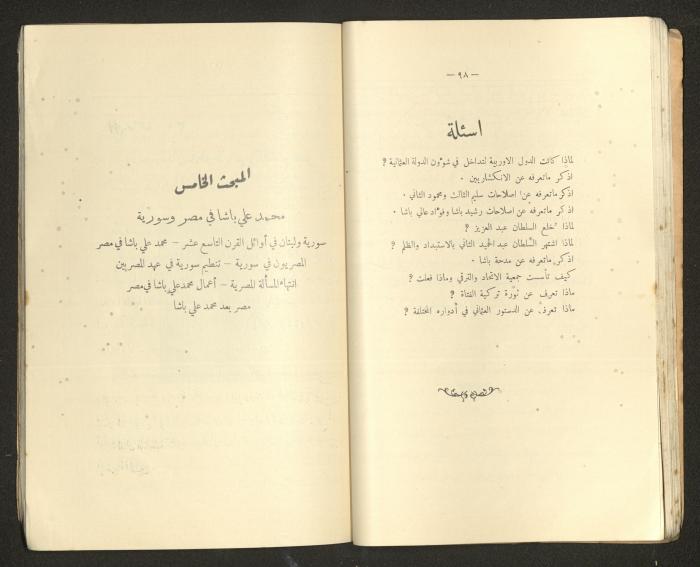 — ٩٨ —
اسئلة
لماذا كانت الدول الاوربية لتداخل في شؤون الدولة العثمانية ؟
اذكر ماتعرفه عن الانكشاريين .
اذكر ماتعرفه عن اصلاحات سليم الثالث ومحمود الثاني .
اذكر ماتعرفه عن اصلاحات رشيد باشا وفؤاد عالي باشا .
لماذا خلع السلطان عبد العزيز ؟
لماذا اشتهر السلطان عبد الحميد الثاني بالاستبداد والظلم ؟
اذكر ماتعرفه عن مدحة باشا .
كيف تأسست جمعية الاتحاد والترقي وماذا فعلت ؟
ماذا تعرف عن ثورة تركية الفتاة ؟
ماذا تعرف عن الدستور العثماني في أدواره المختلفة ؟
المبحث الخامس
محمد علي باشا في مصر وسورية
سورية ولبنان في أوائل القرن التاسع عشر – محمد علي باشا في مصر
المصريون في سورية – تنظيم سورية في عهد المصريين
انتهاء المسألة المصرية – أعمال محمد علي باشا في مصر
مصر بعد محمد علي باشا